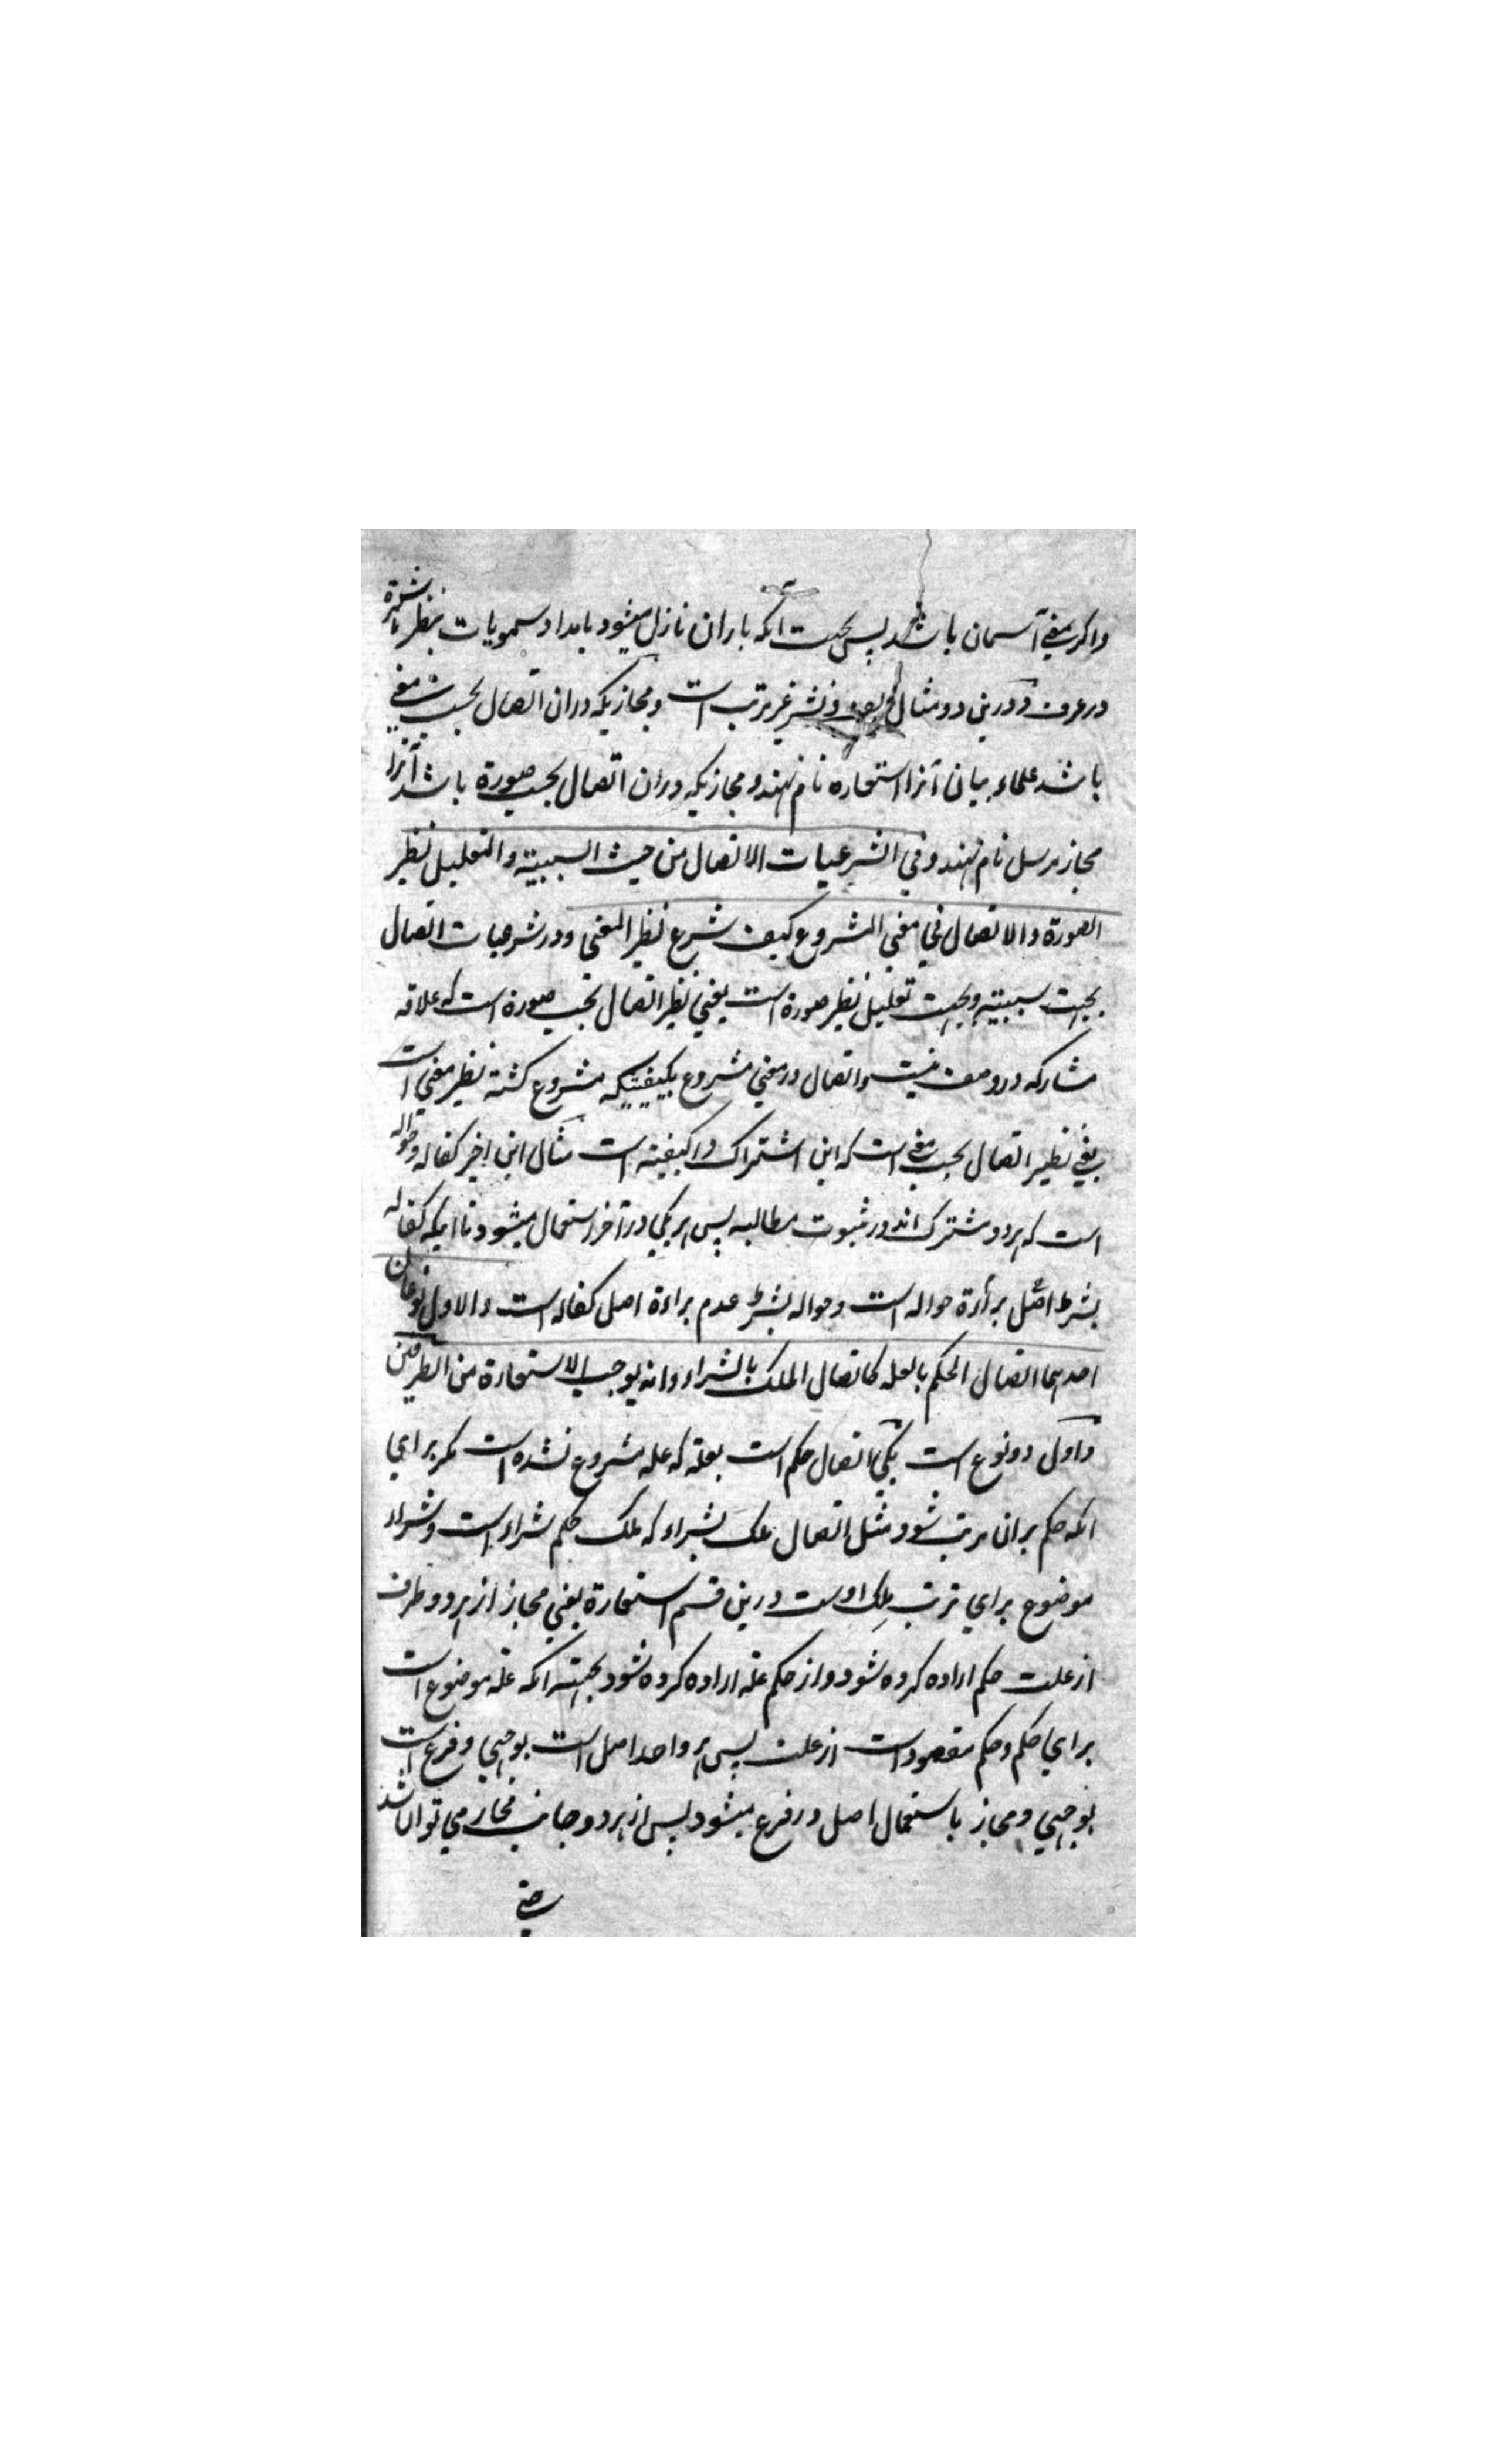 واکر بمعنی آسمان باشد پس بجهت آنکه باران نازل میشود بامداد سمویات بنظر
در عرف و درین دو مثال لف و نشر غیر مرتب است و مجازیکه دران اتصال بحسب معنی
باشد علماء بیان آنرا استعاره نام نهند و مجازیکه دران اتصال بحسب صورة باشد آنرا
مجاز مرسل نام نهند وفی الشرعیات الاتصال من حیث السببیة والتعلیل نظیر
الصورة والاتصال فی معنی المشروع کیف شرع نظیر المعنی ودر شرعیات اتصال
بجهت سببیة وبجهت تعلیل نظیر صورة است یعنی نظیر اتصال بحسب صورة است که علاقه
مشارکه در وصف نیست واتصال در معنی مشروع بکیفیتیکه مشروع کشته نظیر معنی است
یعنی نظیر اتصال بحسب معنی است که این اشتراک در کیفیته است مثال این اخیر کفاله وحواله
است که هر دو مشترک اند در ثبوت مطالبه پس هر یکی در آخر استعمال میشود تا اینکه کفاله
بشرط اصل برأءة حواله است وحواله بشرط عدم براءة اصل کفاله است والاول نوعان
احدهما اتصال الحکم بالعله کاتصال الملک بالشراء وانه یوجب الاستعارة من الطرفین
واول دو نوع است یکی اتصال حکم است بعلة که علة مشروع نشده است مکر برای
انکه حکم بران مرتب شود مثل اتصال ملک بشراء که ملک حکم شراء است وشراء
موضوع برای ترتب ملک اوست درین قسم استعارة یعنی مجاز از هر دو طرف
از علت حکم اراده کرده شود واز حکم علة اراده کرده شود بجهته انکه علة موضوع است
برای حکم وحکم مقصود است از علت پس هر واحد اصل است بوجهی وفرع است
بوجهی ومجاز باستعمال اصل در فرع میشود پس از هر دو جانب مجاز می توان شد